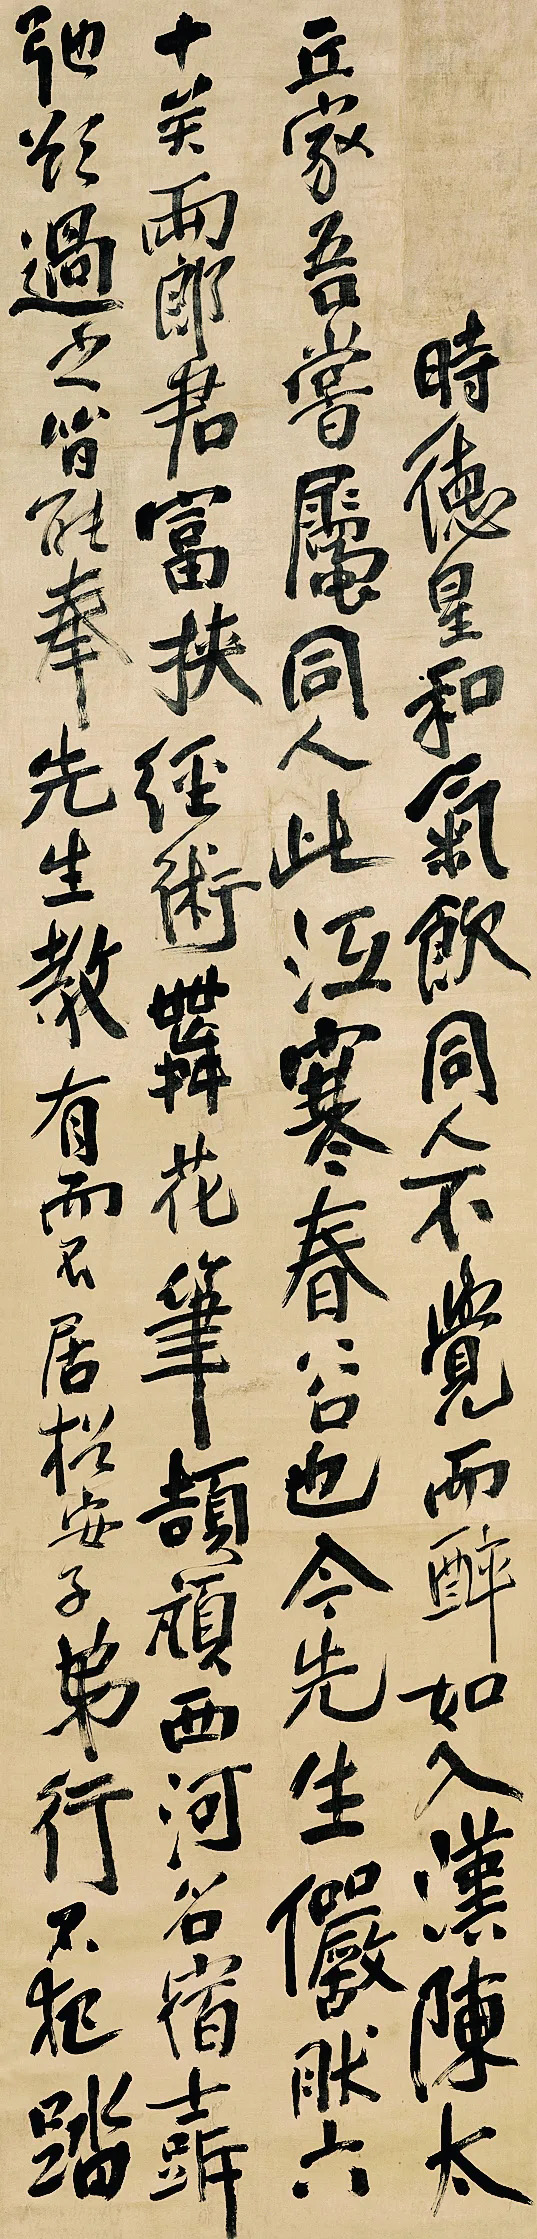 時德星和氣飲同人不覺而醉如入漢陳太
丘家吾嘗屬同人此沍寒春谷也今先生儼然六
十矣兩郎君富挾經術舞花筆頡頏西河名宿聲
弛欲過之皆能奉先生教有而不居招安子弟行不犯踏